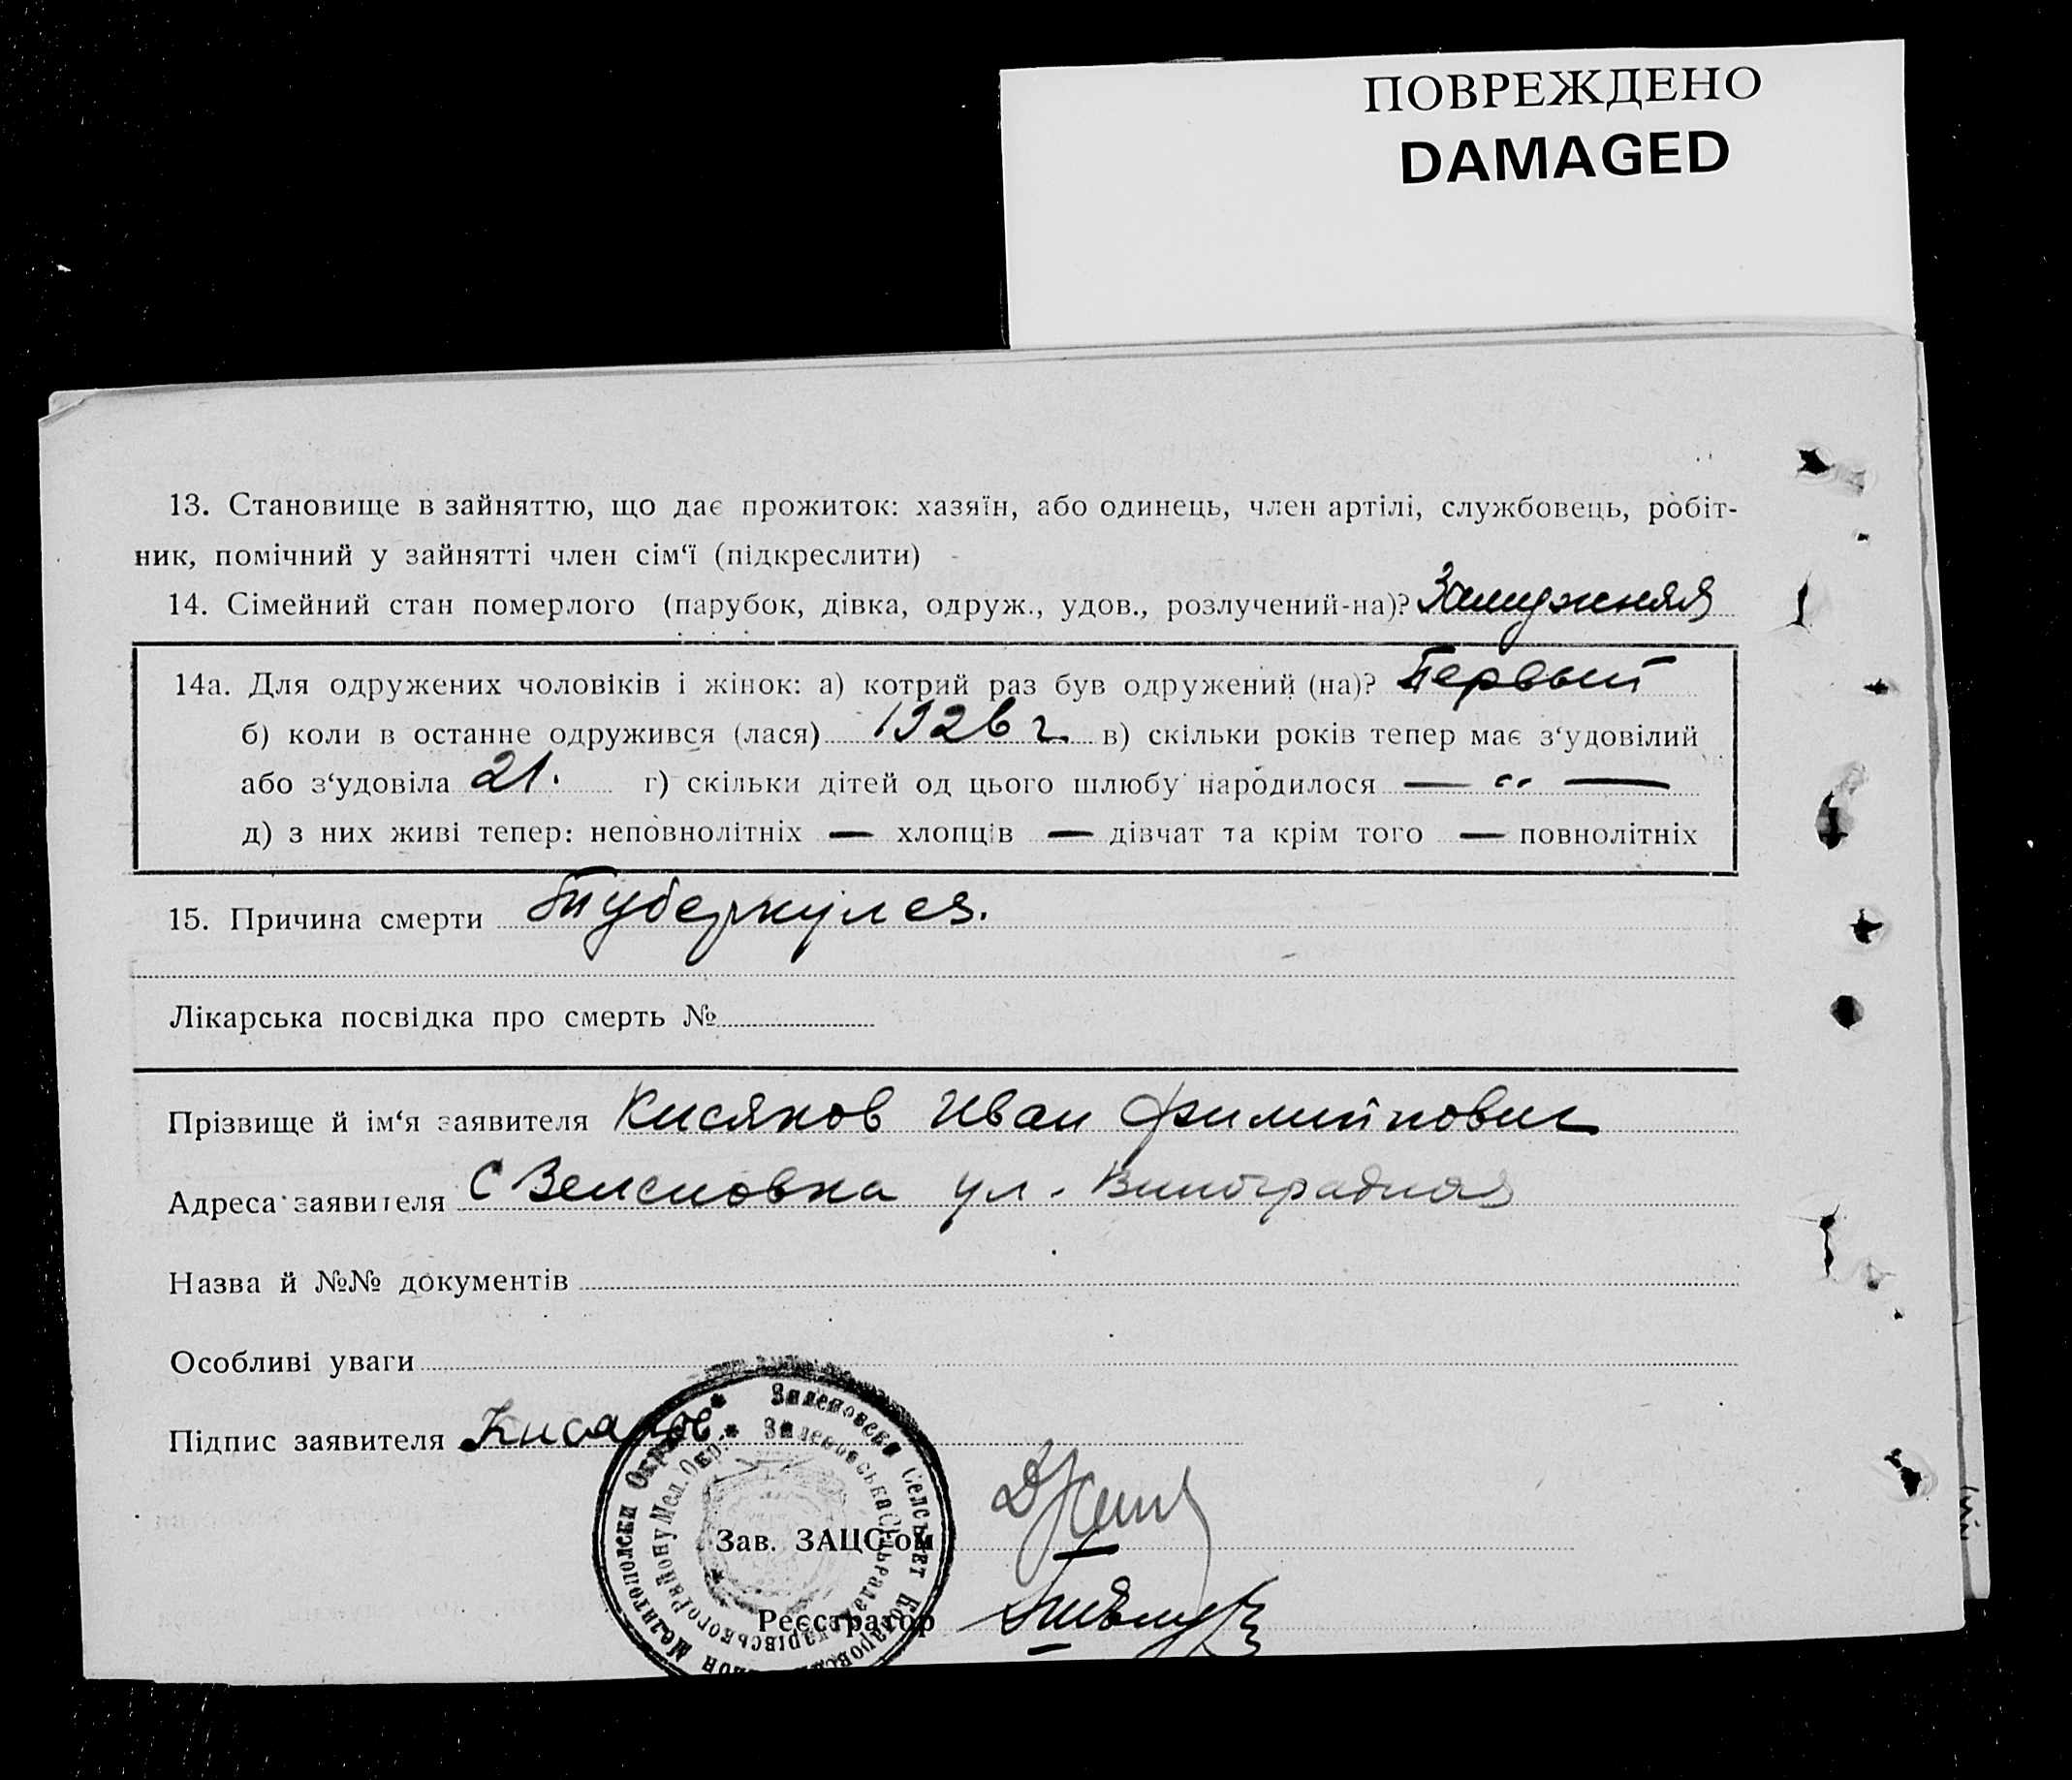 ПОВРЕЖДЕНО
DAMAGED
13. Становище в зайняттю, що дає прожиток: хазяїн, або одинець, член артілі, службовець, робіт-
ник, помічний у зайнятті член сім‘ї (підкреслити)
14. Сімейний стан померлого (парубок, дівка, одруж., удов., розлучений-на)? Замужняя
14а. Для одружених чоловіків і жінок: а) котрий раз був одружений (на)? Первый
б) коли в останнє одружився (лася) 1926 г. в) скільки років тепер має з‘удовілий
або з‘удовіла 21. г) скільки дітей од цього шлюбу народилося — „ —
д) з них живі тепер: неповнолітніх — хлопців — дівчат та крім того — повнолітніх
15. Причина смерти Туберкулез.
Лікарська посвідка про смерть №
Прізвище й ім‘я заявителя Кисяков Иван Филиппович
Адреса заявителя С Зеленовка ул. Виноградная
Назва й №№ документів
Особливі уваги
Підпис заявителя
Зав. ЗАЦС‘ом
Реєстратор